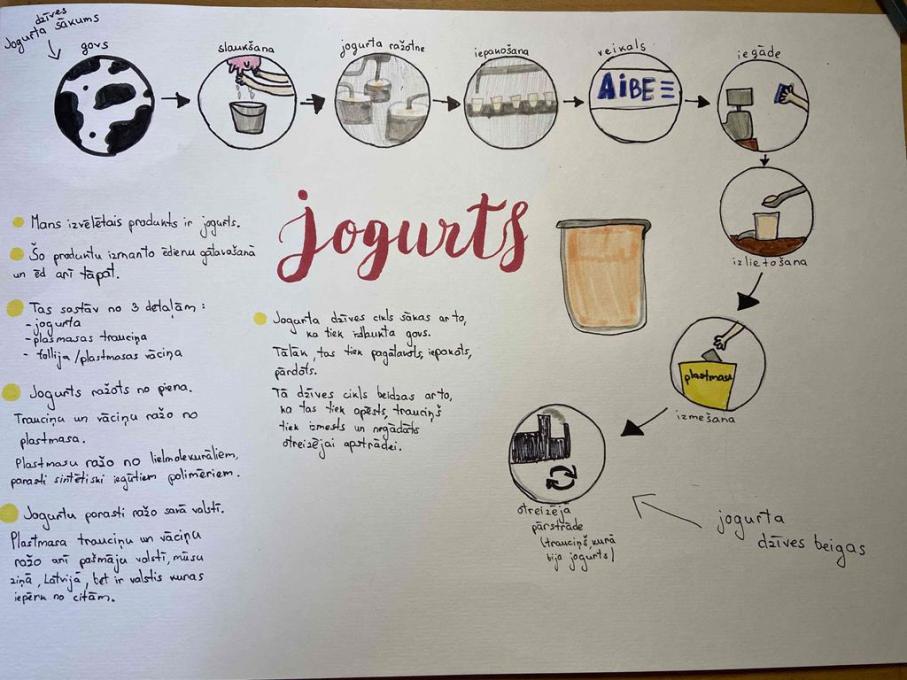 dzīves
Jogurta sākums
govs
slaukšana
jogurta ražotne
iepakošana
veikals
AiBE
iegāde
izlietošana
plastmasa
izmešana
otreizējā
pārstrāde
(trauciņš, kurā
bija jogurts)
jogurta
dzīves beigas
jogurts
Mans izvēlētais produkts ir jogurts.
Šo produktu izmanto ēdienu gatavašanā
un ēd arī tāpat.
Tas sastāv no 3 detaļām:
- jogurta
- plasmasas trauciņa
- follija/plastmasas vāciņa
Jogurts ražots no piena.
Trauciņu un vāciņu ražo no
plastmasa.
Plastmasu ražo no lielmolekurāliem,
parasti sintētiski iegūtiem polimēriem.
Jogurtu parasti ražo savā valstī.
Plastmasa trauciņu un vāciņu
ražo arī pašmāju valstī, mūsu
ziņā, Latvijā, bet ir valstis kuras
iepērk no citām.
Jogurta dzīves cikls sākas ar to,
ka tiek izslaukta govs.
Tālāk, tas tiek pagatavots, iepakots,
pārdots.
Tā dzīves cikls beidzas ar to,
ka tas tiek apēsts, trauciņš
tiek izmests un nogādāts
otreizējai apstrādei.